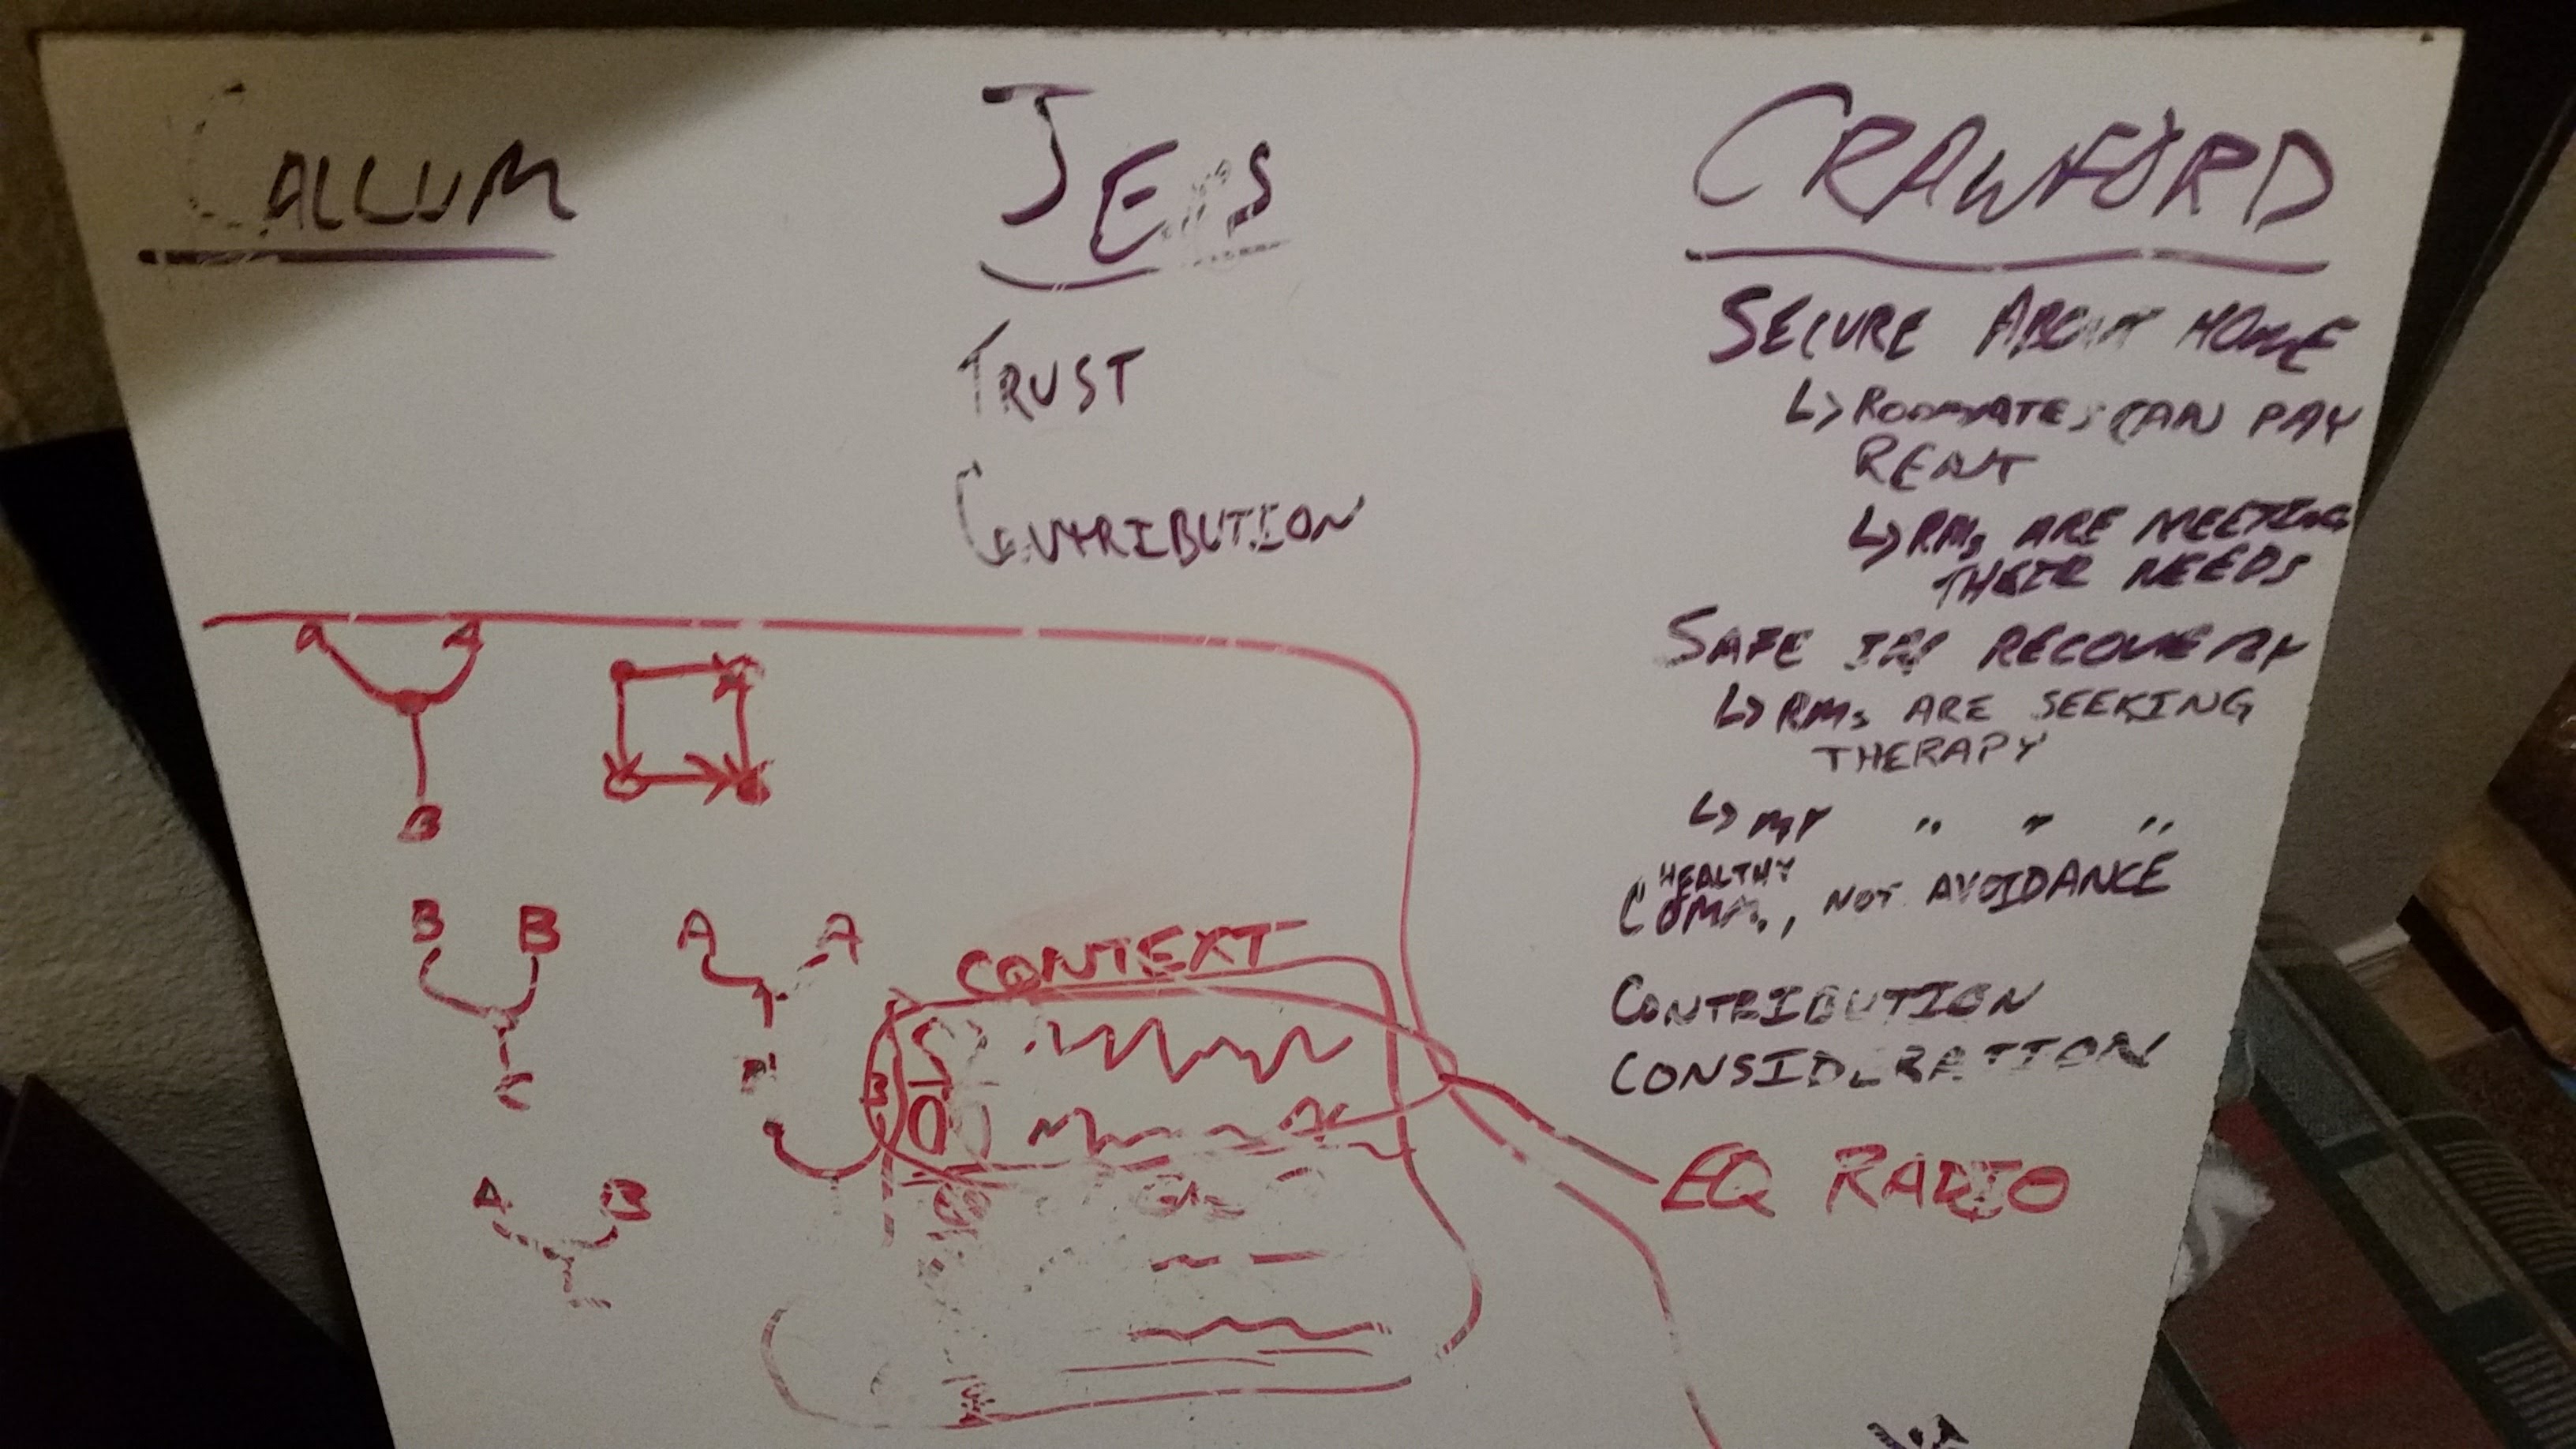 CALLUM
JESS
CRAWFORD
TRUST
CONTRIBUTION
SECURE ABOUT HOME
↳ ROOMMATES CAN PAY
RENT
↳ RMs ARE MEETING
THEIR NEEDS
SAFE IN RECOVERY
↳ RMs ARE SEEKING
THERAPY
↳ MY " " "
HEALTHY
COMM., NOT AVOIDANCE
CONTRIBUTION
CONSIDERATION
a A
B
B B
C
A A
CONTEXT
B
A B
EQ RADIO